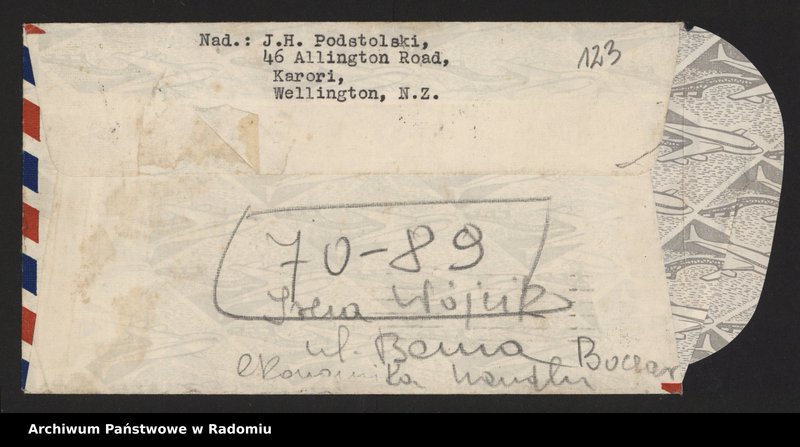 Nad.: J.H. Podstolski,
46 Allington Road,
Karori,
Wellington, N.Z.
123
70-89
Irena Wójcik
ul. Bema
ekonomika handlu
Archiwum Państwowe w Radomiu